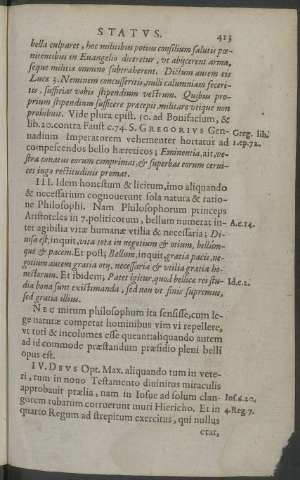 STATVS. 413
bella culparet, hoc militibus potius consilium salutis pœ-
nitentibus in Euangelio diceretur, ut abijcerent arma,
seque militiæ omnino subtraherent. Dictum autem eis
Lucæ 3. Neminem concusseritis, nulli calumniam fecer-
tis. sufficiat vobis stipendium vestrum. Quibus pro-
prium stipendium sufficere præcepit, militare vtique non
prohibuit. Vide plura epist. 50. ad Bonifacium, &
lib. 20. contra Faust. c. 74. S. GREGORIVS Gen-
nadium Imperatorem vehementer hortatur ad
compescendos bello hæreticos; Eminentia, ait, ve-
stra conatus eorum comprimat, & superbas eorum cerui-
ces iugo rectitudinis premat.
Greg. lib.
1. ep. 72.
III. Idem honestum & licitum, imo aliquando
& necessarium cognouerunt sola natura & ratio-
ne Philosophi. Nam Philosophorum princeps
Aristoteles in 7. politicorum, bellum numerat in-
ter agibilia vitæ humanæ vtilia & necessaria; Di-
uisa est, inquit, vita tota in negotium & otium, bellúm-
que & pacem. Et post; Bellum, inquit, gratia pacis, ne-
gotium autem gratia otij, necessaria & vtilia gratia ho-
nestorum. Et ibidem; Patet igitur, quod bellica rei stu-
dia bona sunt existimanda, sed non vt finis supremus,
sed gratia illius.
A. c. 14.
Id. c. 2.
NEC mirum philosophum ita sensisse, cum le-
ge naturæ competat hominibus vim vi repellere,
vt toti & incolumes esse queant: aliquando autem
ad id commode præstandum præsidio pleni belli
opus est.
IV. DEVS Opt. Max. aliquando tum in vete-
ri, tum in nouo Testamento diuinitus miraculis
approbauit prælia, nam in Iosue ad solum clan-
gorem tubarum corruerunt muri Hiericho. Et in
quarto Regum ad strepitum exercitus, qui nullus
Ios. 6. 20.
4. Reg. 7.
erat,